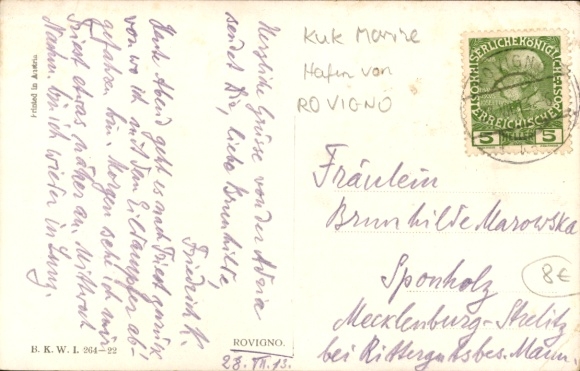 Herzliche Grüsse von der Adria
sendet Dir, liebe Brunhilde,
Friedrich K.
Heute Abend geht es nach Triest zurück
von wo ich mit dem Eildampfer ab-
gefahren bin. Morgen sehe ich mir
Triest etwas näher an. Mittwoch
Nachm. bin ich wieder in
Printed in Austria
B. K. W. I. 264-22
ROVIGNO.
28. VII. 13.
KuK Marine
Hafen von
ROVIGNO
KAISERLICHE KÖNIGLICHE
ÖSTERREICHISCHE
5 5
Fräulein
Brunhilde Marowska
Sponholz
Mecklenburg-Strelitz
bei Rittergutsbes. Mann
8€